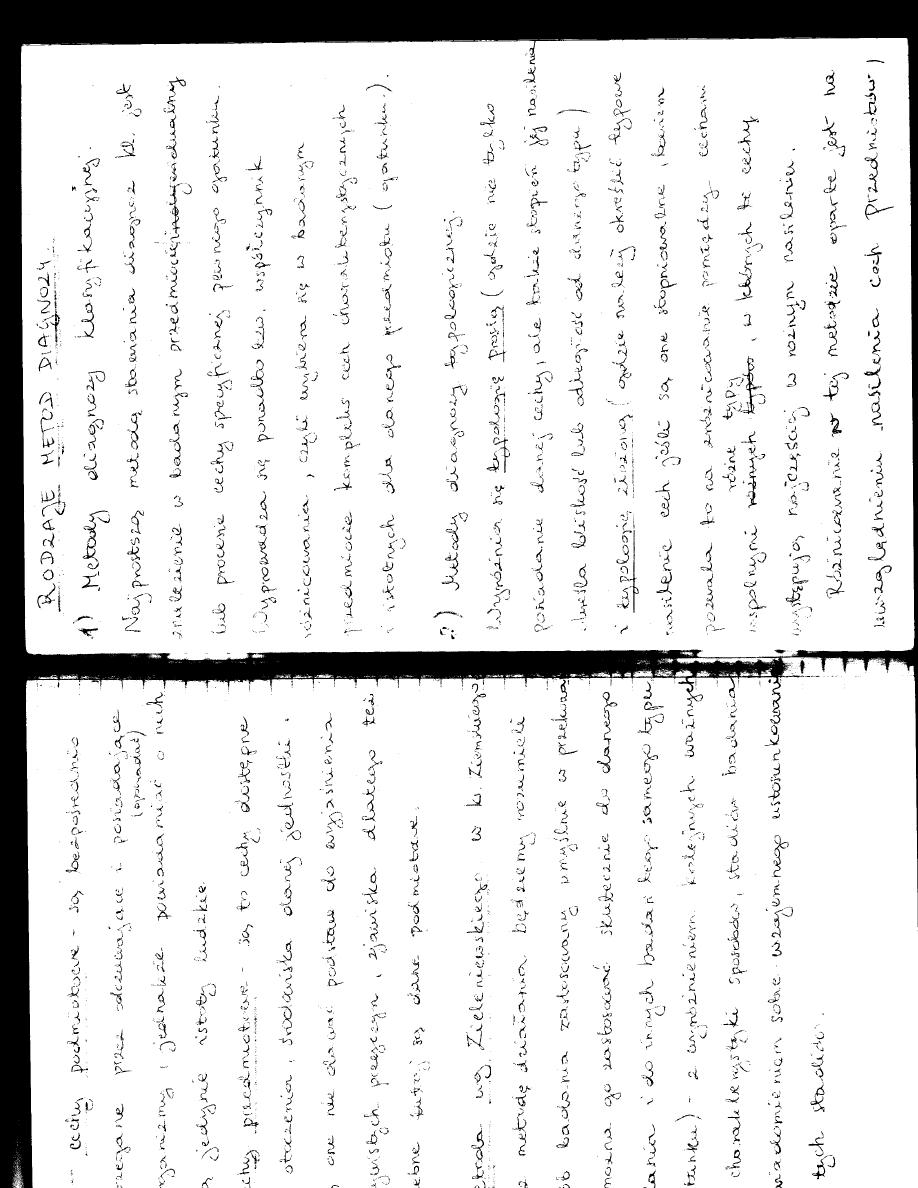 -- cechy podmiotowe - są bezpośrednio
przez odczuwające i posiadające
(opowiadać)
, jednakże powiadamiać o nich
jedynie istoty ludzkie.
przedmiotowe - są to cechy dostępne
otoczenia, środowiska danej jednostki.
one nie dawać podstaw do wyjaśnienia
przyczyn i zjawiska dlatego też
tutaj są dane podmiotowe.
wg Zieleniewskiego w b. Ziemskiego
metodę działania będziemy rozumieli
badania zastosowany umyślnie w
można go zastosować skutecznie do danego
i do innych badań tego samego typu
) - z wyróżnieniem kolejnych ważnych
charakterystyki sposobów, stadiów badania
sobie wzajemnego ustosunkowania
tych stadiów.
RODZAJE METOD DIAGNOZY
1) Metody diagnozy klasyfikacyjnej.
Najprostszą metodą stawiania diagnoz kl. jest
znalezienie w badanym przedmiocie indywidualny
lub procenie cechy specyficznej pewnego gatunku.
Wyprowadza się ponadto tzw. współczynnik
różnicowania, czyli wybiera się w badanym
przedmiocie kompleks cech charakterystycznych
i istotnych dla danego przedmiotu (gatunku.).
2) Metody diagnozy typologicznej.
Wyróżnia się typologię prostą (gdzie nie tylko
posiadanie danej cechy, ale także stopień jej nasilenia
określa bliskość lub odległość od danego typu)
i typologię złożoną (gdzie należy określić typowe
nasilenie cech jeśli są one stopniowalne, bowiem
pozwala to na zróżnicowanie pomiędzy cechami
różne typy
wspólnymi różnych typów, w których te cechy
występują najczęściej w różnym nasileniu.
Różnicowanie w tej metodzie oparte jest na
uwzględnieniu nasilenia cech przedmiotów)